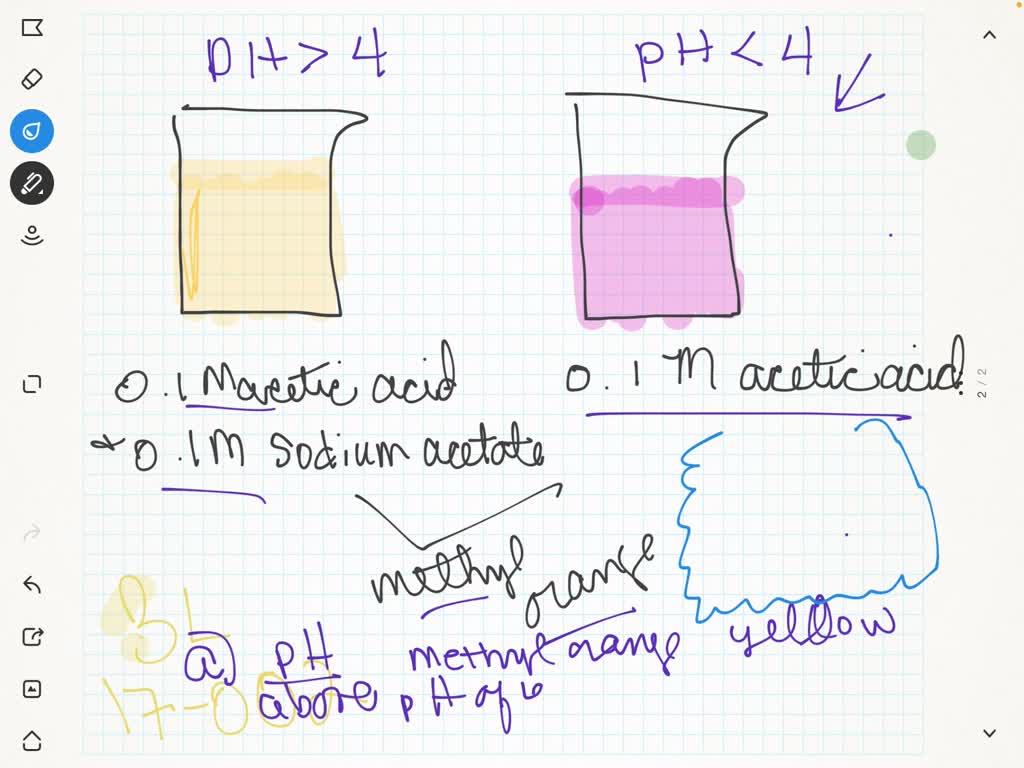 pH > 4
pH < 4
0.1 M acetic acid
0.1 M acetic acid
+ 0.1M sodium acetate
methyl orange
yellow
a) pH methyl orange
above pH of
2 / 2